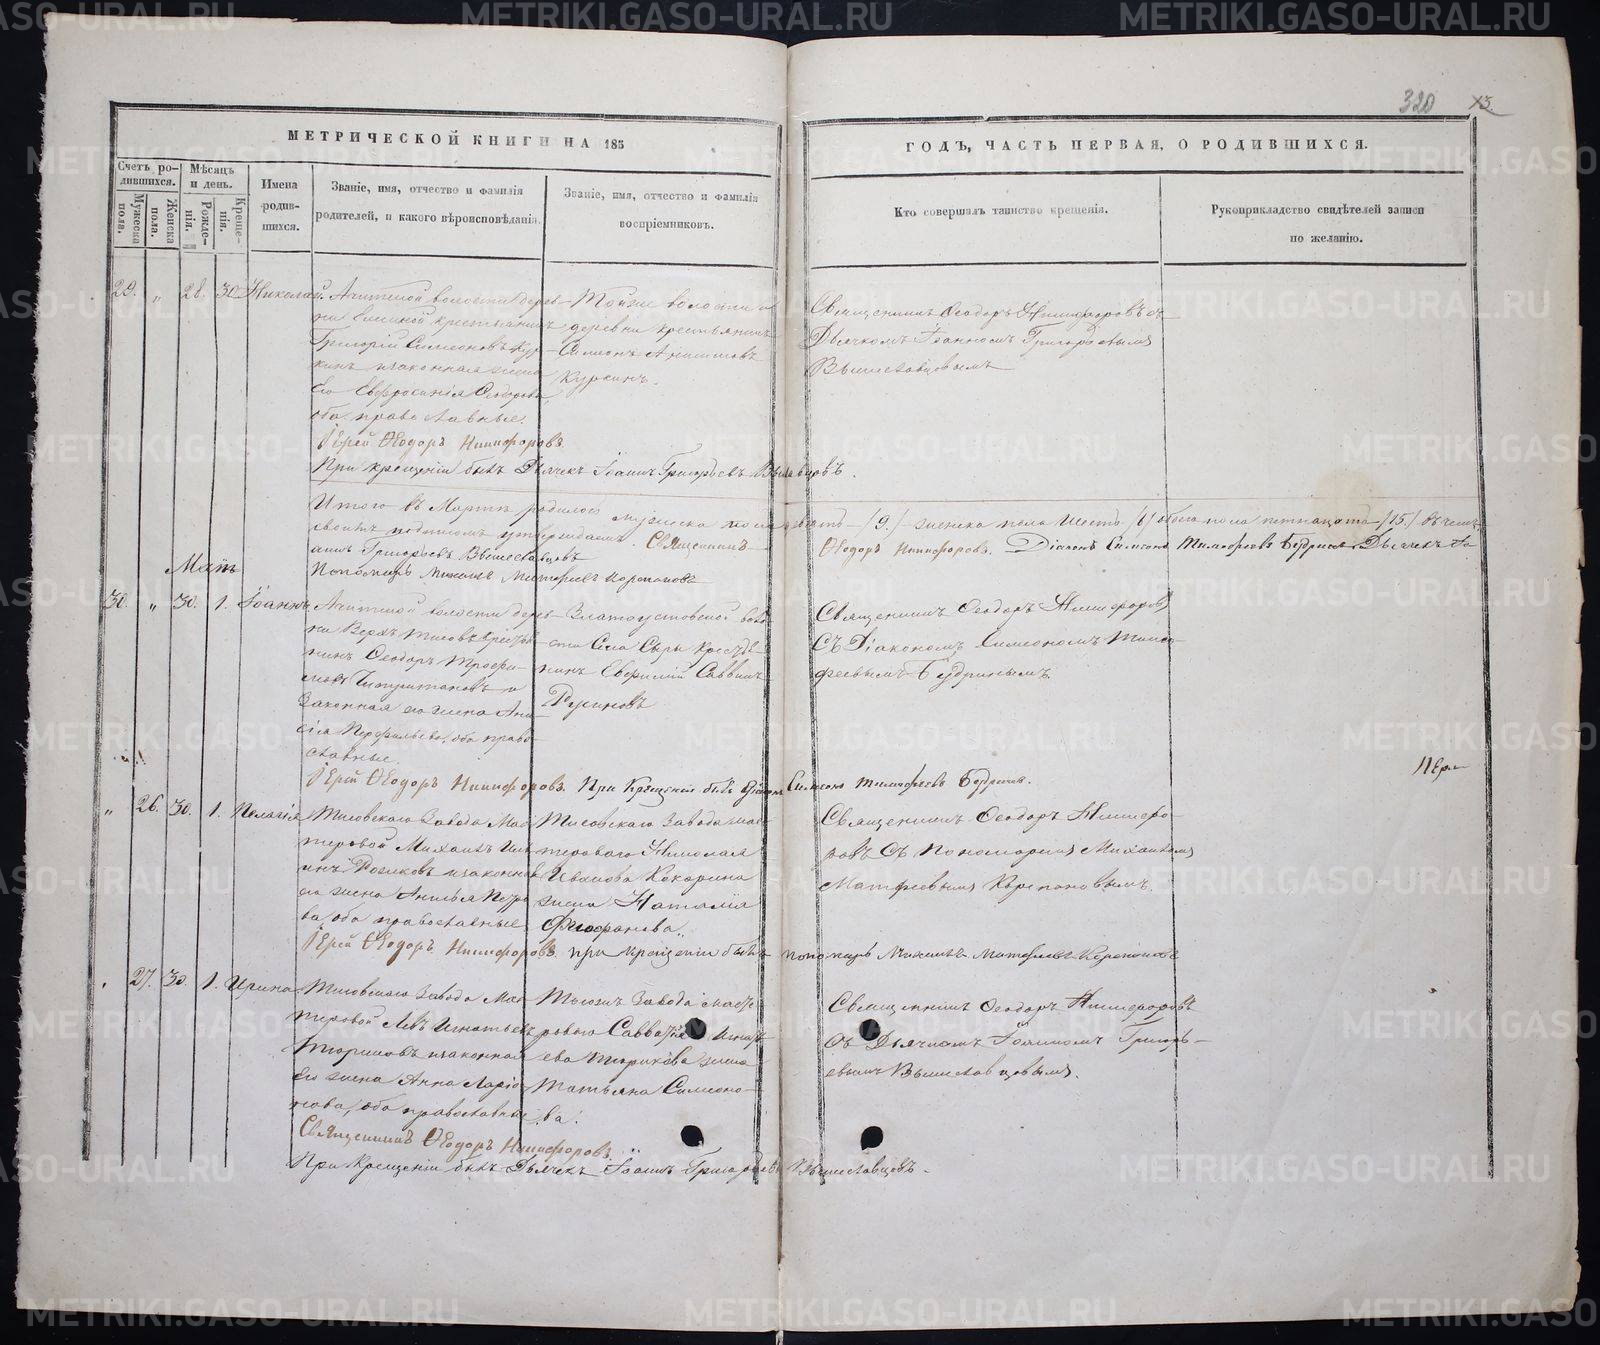 320
МЕТРИЧЕСКОЙ КНИГИ НА 185
ГОДЪ, ЧАСТЬ ПЕРВАЯ, О РОДИВШИХСЯ.
Счетъ ро-
дившихся.
Мужеска
пола.
Женска
пола.
Мѣсяцъ
и день.
Рожде-
нія.
Креще-
нія.
Имена
родив-
шихся.
Званіе, имя, отчество и фамилія
родителей, и какого вѣроисповѣданія.
Званіе, имя, отчество и фамилія
воспріемниковъ.
Кто совершалъ таинство крещенія.
Рукоприкладство свидѣтелей записи
по желанію.
29. " 28. 30. Николай.
Ачитской волости дерев-
ни крестьянинъ
Григорій Симеоновъ Кур-
кинъ и законная жена
его Евфросинія Ѳеодорова,
оба православные.
Той же волости и
деревни крестьянинъ
Симеонъ
Куркинъ.
Священникъ Ѳеодоръ Никифоровъ съ
Дьячкомъ Іоанномъ Григорьевымъ
Вышеславцовымъ
Іерей Ѳеодоръ Никифоровъ.
При крещеніи былъ Дьячекъ Іоаннъ Григорьевъ
Итого въ Мартѣ родилось мужеска пола девять /9./ женска пола шесть /6/ обоего пола пятнадцать /15./ въ чемъ
своимъ подписомъ утверждаемъ. Священникъ Ѳеодоръ Никифоровъ. Діаконъ Симеонъ Тимофеевъ Бедринъ Дьячекъ Іо-
аннъ Григорьевъ Вышеславцовъ
Пономарь Михаилъ Матфеевъ Корепановъ
Май
30. " 30. 1. Іоаннъ
Ачитской волости дерев-
ни Верхъ Тисовъ крестья-
нинъ Ѳеодоръ Трофи-
мовъ и
законная его жена Ана-
сія Перфильева, оба право-
славные.
Златоустовской воло-
сти Села Сыры крестья-
нинъ Евфимій Саввинъ
Русиновъ
Священникъ Ѳеодоръ Никифоровъ
съ Діакономъ Симеономъ Тимо-
феевымъ Бедринымъ.
Іерей Ѳеодоръ Никифоровъ. При Крещеніи былъ Діаконъ Симеонъ Тимофеевъ Бедринъ.
" 26. 30. 1. Пелагія
Тисовскаго Завода Мас-
теровой Михаилъ
и законная
его жена Петро-
ва, оба православные
Тисовскаго Завода мас-
тероваго Николая
Иванова Кокорина
жена Наталія
Феофанова.
Священникъ Ѳеодоръ Никифо-
ровъ съ пономаремъ Михаиломъ
Матфеевымъ Корепановымъ.
Іерей Ѳеодоръ Никифоровъ. при крещеніи былъ пономарь Михаилъ Матфеевъ Корепановъ
27. 30. 1. Ирина
Тисовскаго Завода Мас-
теровой Левъ Игнатьевъ
Тюриковъ и законная
его жена Анна Ларіо-
нова, оба православные
Тогожъ Завода масте-
роваго Савватія Игнать-
ева Тюрикова жена
Татьяна Симеоно-
ва.
Священникъ Ѳеодоръ Никифоровъ
съ Дьячкомъ Іоанномъ Григорь-
евымъ Вышеславцовымъ.
Священникъ Ѳеодоръ Никифоровъ.
При Крещеніи былъ Дьячекъ Іоаннъ Григорьевъ Вышеславцовъ.
METRIKI.GASO-URAL.RU